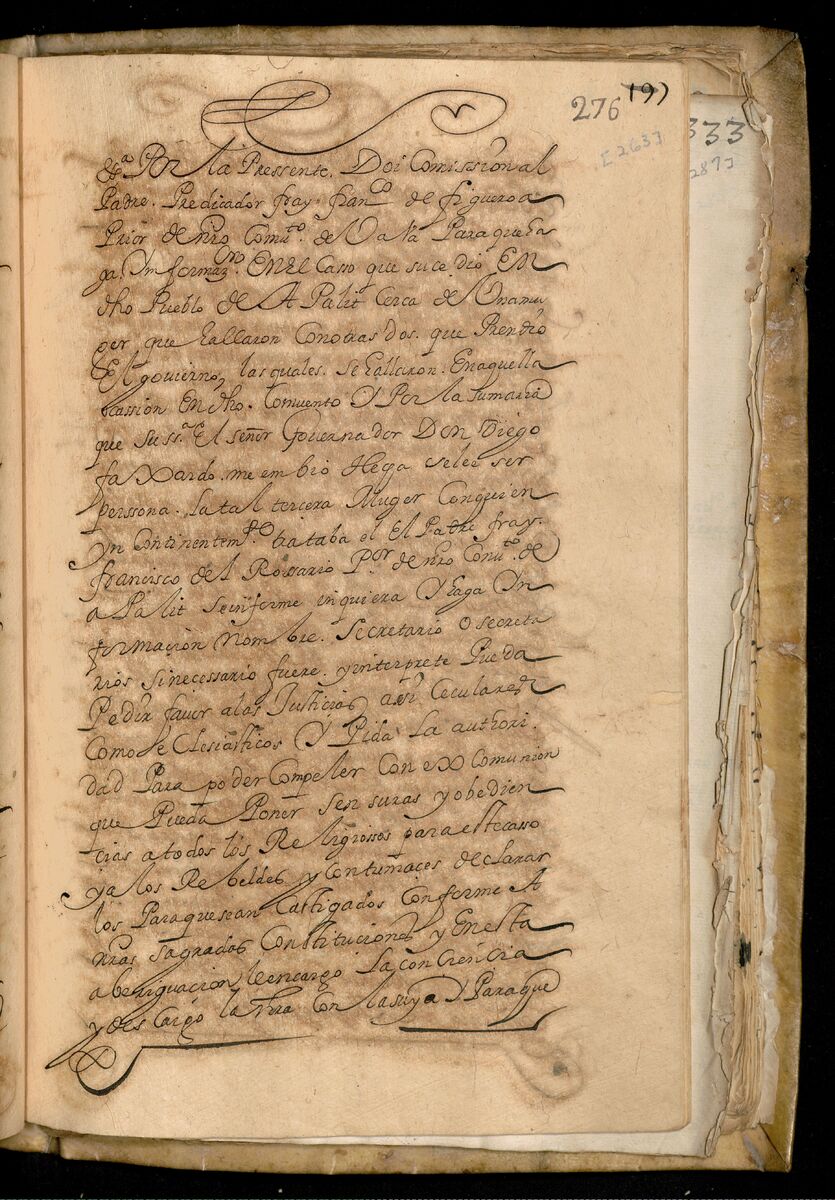 276 197
[263]
333
287]
&ª Por la Pressente. Doi Comission al
Padre. Predicador fray franco de figueroa
Prior de nro Comto. de Para que ha
ga. Ynformazon. EN El Casso que sucedio EN
dho Pueblo de A Palit Cerca de Una mu
ger que hallaron Con otras dos. que Prendio
El govierno, las quales. se hallaron. En aquella
ocassion EN dho. Comvento Y Por la sumaria
que su ssª El señor Governador Don Diego
faxardo. me embio Ser
perssona. La tal tercera Muger Con quien
yn Continentemte. trataba el El Padre fray.
francisco del Rossario Por de nro Convto. de
a Palit se ynforme inquiera Y haga Yn
formacion nombre. Secretario o secreta
rios si necessario fuere. y interprete Pueda
Pedir favor a las Justicias assi Ceculares
Como Eclesiasticos Y Pida La authori.
dad Para poder Compeler Con ex Comunion
que Pueda Poner Sensuras y obedien
cias a todos los Religiossos para este casso
y a los Rebeldes y Contumaces declarar
los Para que sean Castigados Conforme A
nras sagradas Constituciones y En esta
aberiguacion le encargo La conciencia
y descargo la nra Con la suya Y Para que